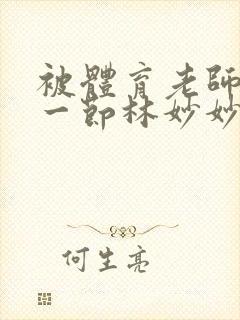 被體育老師
一節林妙妙
何生亮